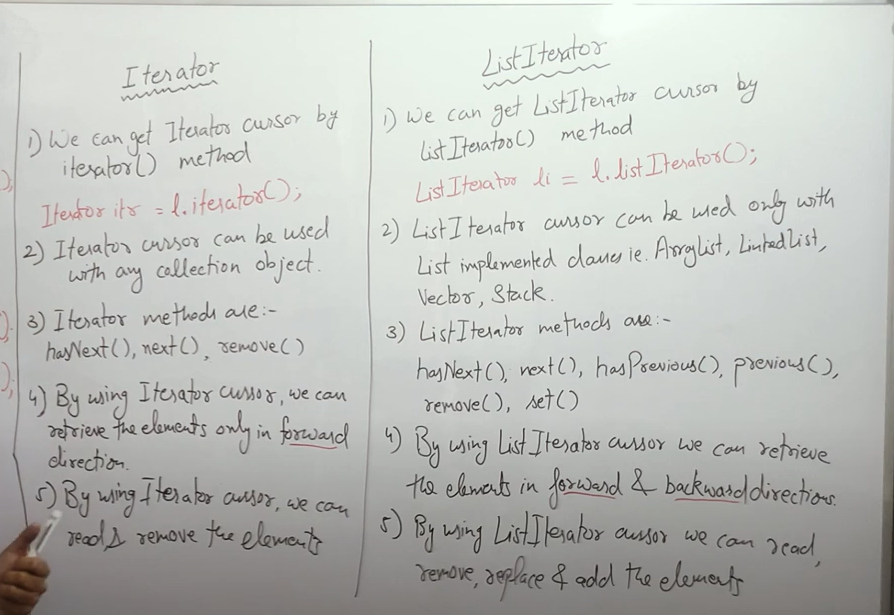 Iterator
1) We can get Iterator cursor by
iterator() method
Iterator itr = l.iterator();
2) Iterator cursor can be used
with any collection object.
3) Iterator methods are:-
hasNext(), next(), remove()
4) By using Iterator cursor, we can
retrieve the elements only in forward
direction.
5) By using Iterator cursor, we can
read & remove the elements
ListIterator
1) We can get ListIterator cursor by
ListIterator() method
ListIterator li = l.listIterator();
2) ListIterator cursor can be used only with
List implemented classes ie. ArrayList, LinkedList,
Vector, Stack.
3) ListIterator methods are:-
hasNext(), next(), hasPrevious(), previous(),
remove(), set()
4) By using ListIterator cursor we can retrieve
the elements in forward & backward directions.
5) By using ListIterator cursor we can read,
remove, replace & add the elements